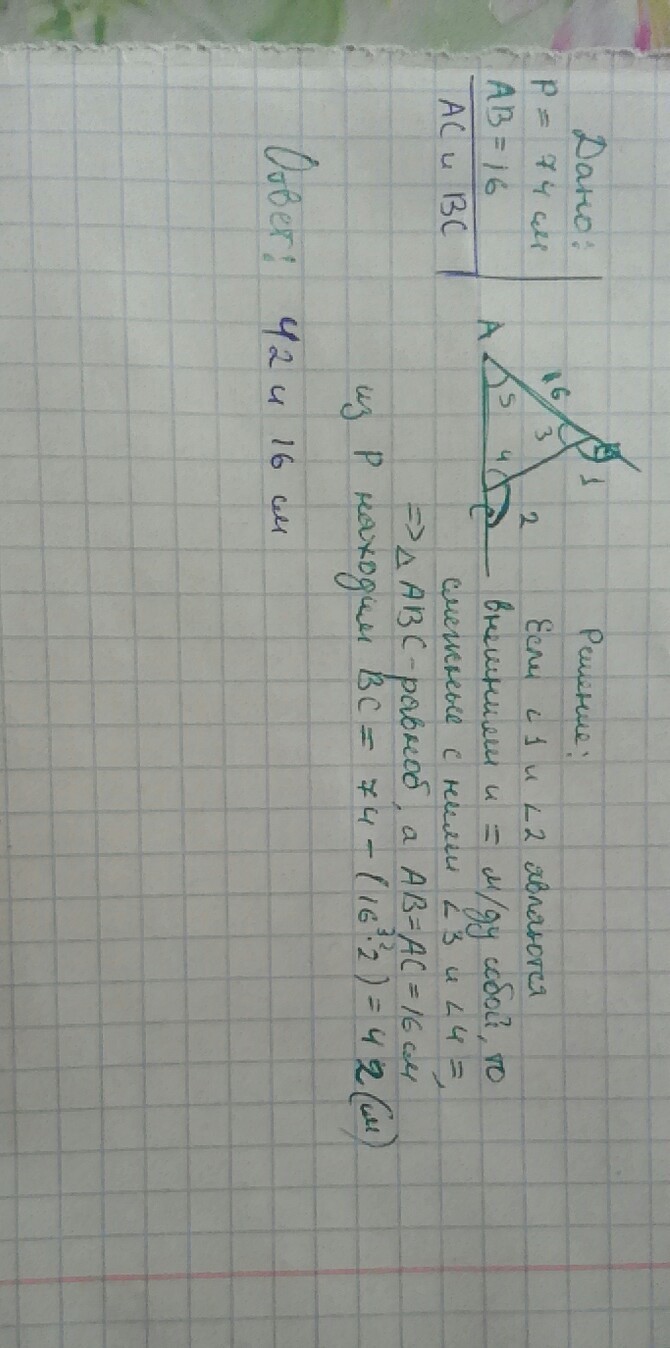 Дано:
P = 74 см
AB = 16
AC и BC
A
16
B
1
3
5
4
2
C
Решение:
Если ∠1 и ∠2 являются
внешними и = м/ду собой, то
смежные с ними ∠3 и ∠4 =,
=> △ABC - равноб, а AB = AC = 16 см
из P находим BC = 74 - (16·2) = 42 (см)
32
Ответ: 42 и 16 см